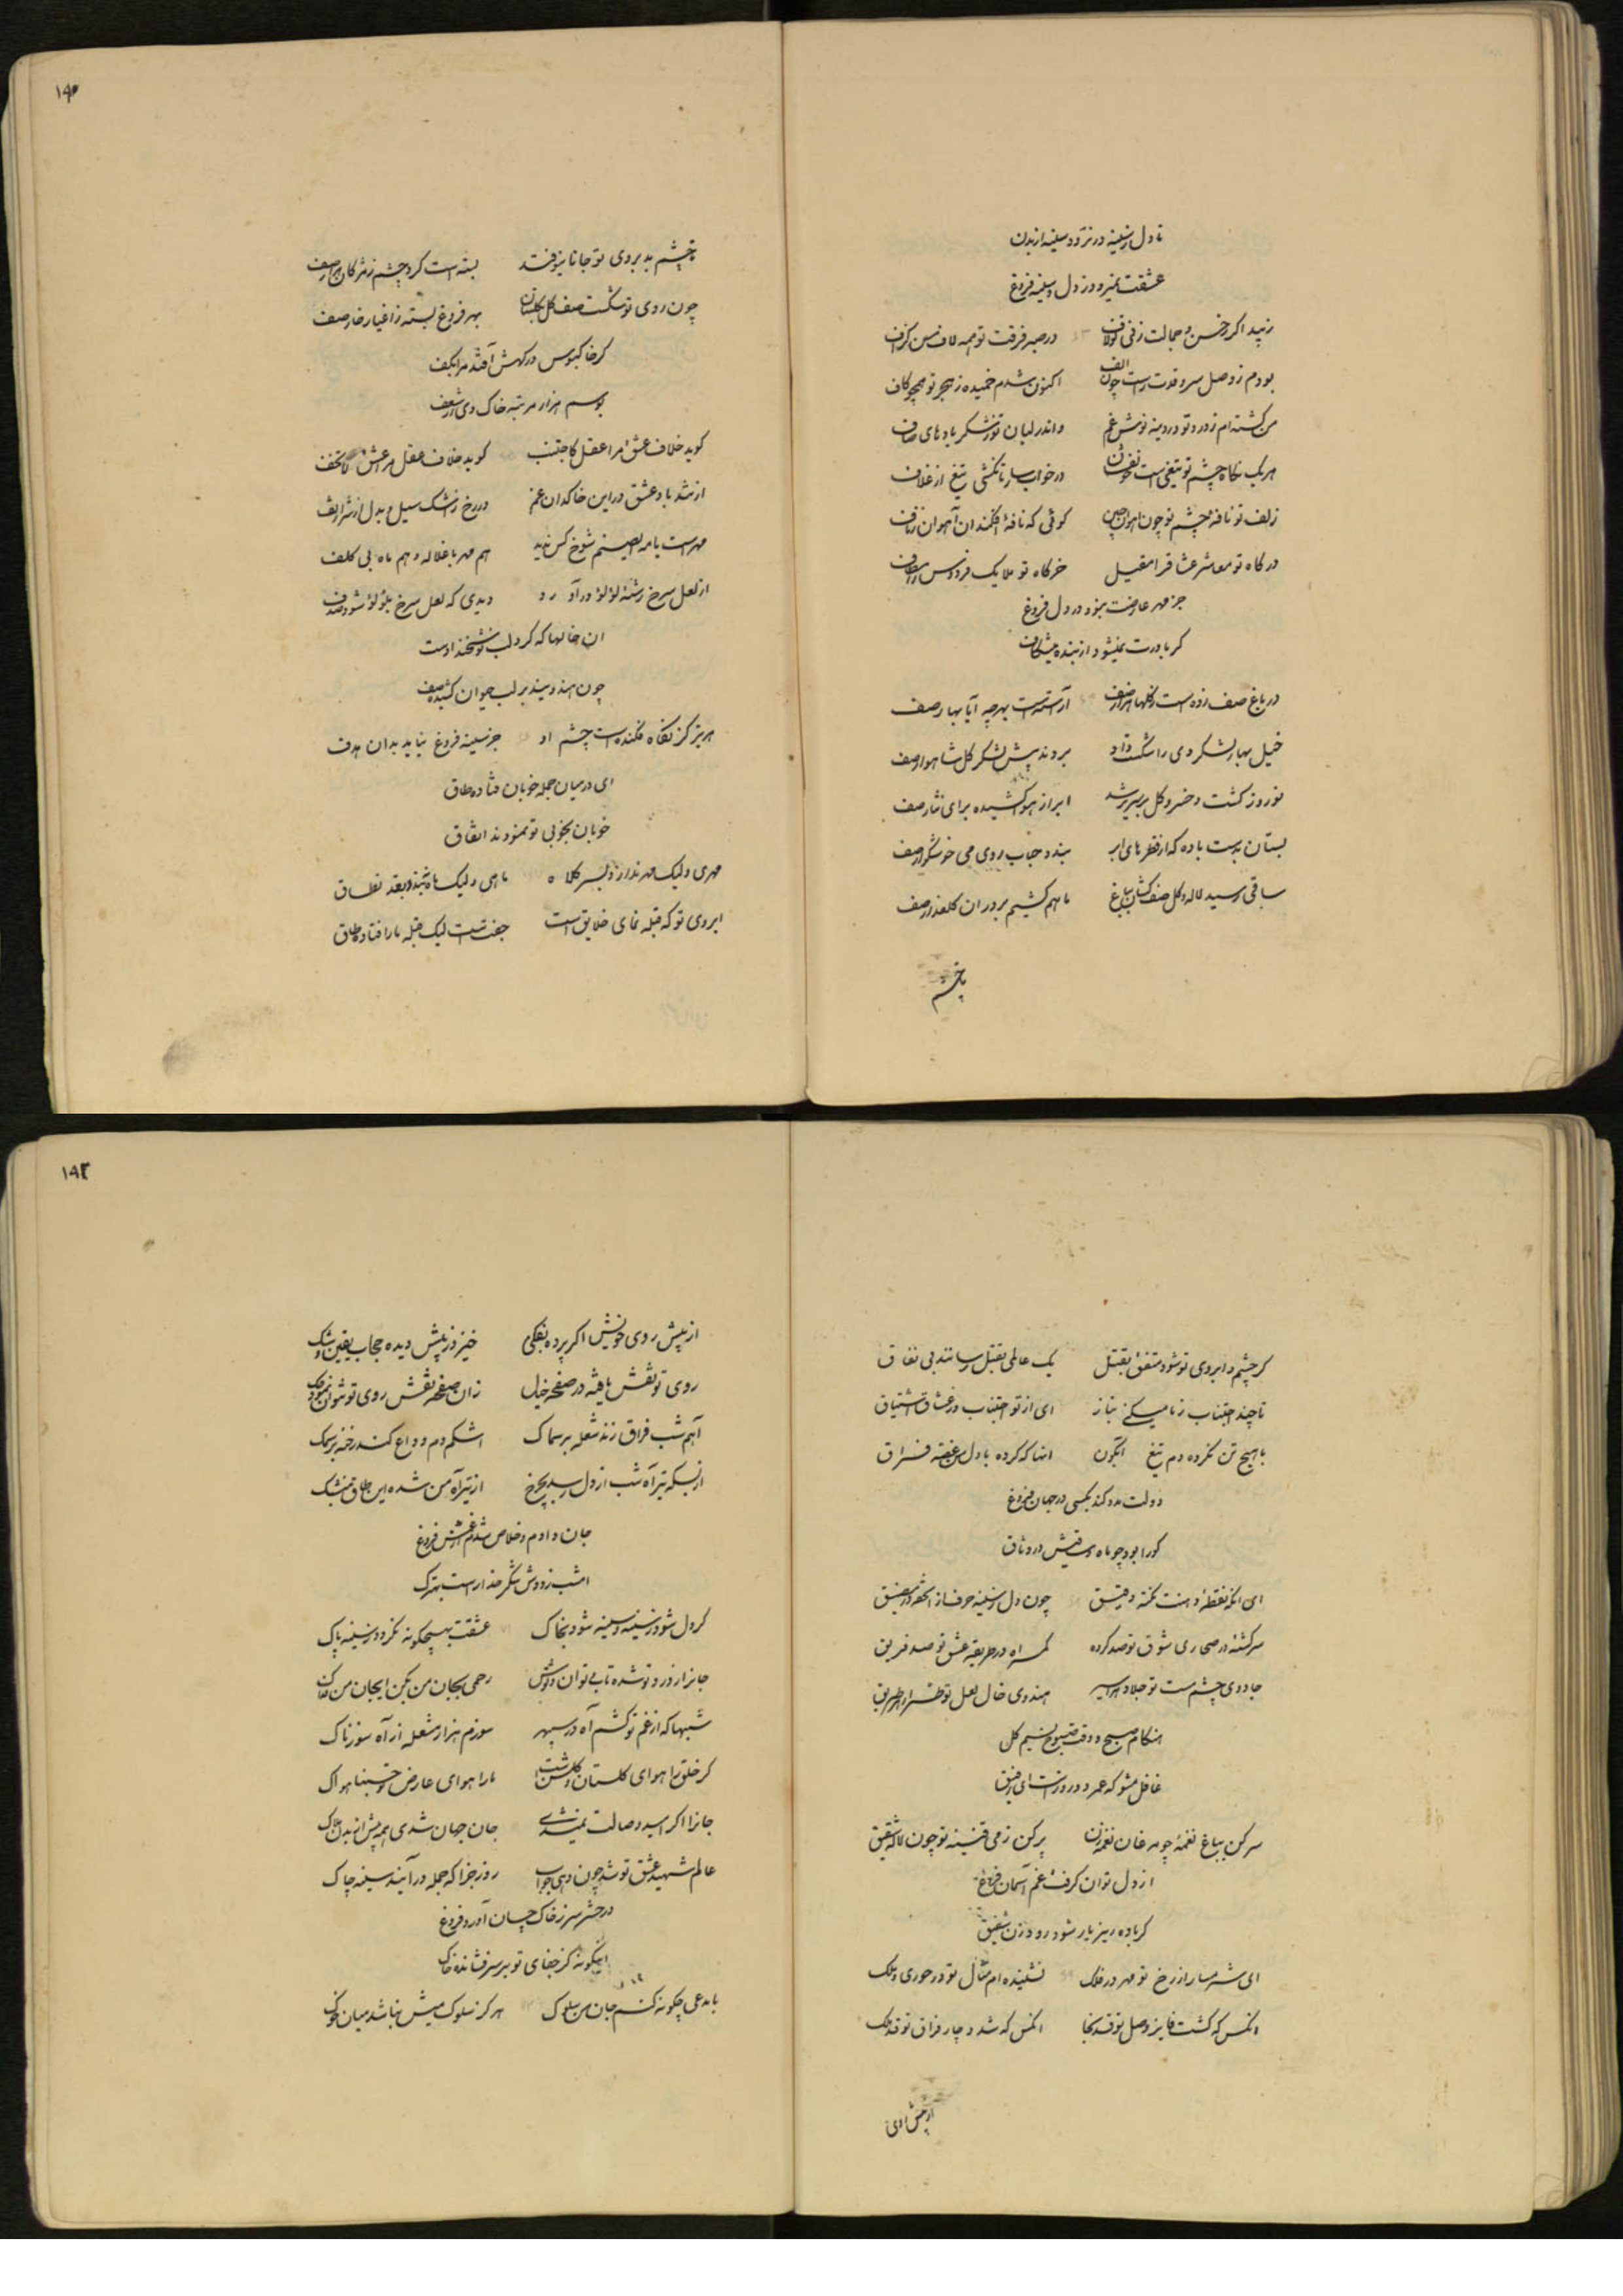 تا دل ز سینه در نرود و سینه از بدن
عشقت نمیرود ز دل و سینه فروغ
زیبد اگر ز حسن و جمالت زنی تو لاف در صبر فرقت تو همه لاف من گزاف
بودم ز وصل سرو قدت راست چون الف اکنون شدم خمیده ز هجر تو همچو کاف
من کشته ام ز درد تو دردینه نوش غم و اندر لبان تو ز شکر باده‌های صاف
هر یک نگاه چشم تو تیغی است در خواب ساز تا نکشی تیغ از غلاف
زلف تو نافه چشم تو چون آهوان چین گوئی که نافه افکند آن آهوان ز ناف
درگاه تو معاشر عشاق را مقیل خرگاه تو ملایک فردوس را مطاف
جز مهر عارضت نبود در دل فروغ
گر باورت نمیشود از بنده می شکاف
در باغ صف زده است ز گلها هزار صف آراسته است بهر چه آیا بهار صف
خیل بهار لشکر دی را شکست داد بردند پیش لشکر گل شاهوار صف
نوروز گشت و خسرو گل بر سریر شد ابر از هوا کشیده برای نثار صف
بستان بدست باده که از قطرهای ابر بندد حباب روی می خوشگوار صف
ساقی رسید لاله و گل صف کشان بباغ ما هم کشیم بر در آن گلعذار صف
تا چشم
۱۹۰
تا چشم بد بروی تو جانا نیوفتد بسته است گرد چشم ز مژگان هزار صف
چون روی تو شکست صف گل بگلستان بهر فروغ بسته ز اغیار خار صف
گر خاکبوس درگهش افتد مرا بکف
بوسم هزار مرتبه خاک وی از شعف
گوید خلاف عشق مرا عقل کاجتنب گوید خلاف عقل مرا عشق لا تخف
از تند باد عشق در این خاکدان غم در رخ ز اشک سیل و بدل از شرار تف
مهر است یا مه این صنم شوخ کس ندید هم مهر با غلاله و هم ماه بی کلف
از لعل سرخ رشته لؤلؤ در آورد دیدی که لعل سرخ بلؤلؤ شود صدف
آن خالها که گرد لب نوشخند اوست
چون هندویند بر لب حیوان کشیده صف
هر تیر کز نگاه فکنده است چشم او جز سینه فروغ نیاید بدان هدف
ای در میان جمله خوبان فتاده طاق
خوبان بخوبی تو نمودند اتفاق
مهری ولیک مهر ندارد بسر کلاه ماهی ولیک ماه نبندد بقد نطاق
ابروی تو که قبله نمای خلایق است جفت است لیک قبله ما را فتاده طاق
۱۹۲
گر چشم و ابروی تو شود متفق بقتل یک عالمی بقتل رسانند بی نفاق
تا چند اجتناب ز ما میکنی بناز ای از تو اجتناب و ز عشاق اشتیاق
با هیچ تن نکرده دم تیغ آبگون آنها که کرده با دل من غصه فراق
دولت مدد کند بکسی در جهان فروغ
کورا بود چو ماه رفیقش در وثاق
ای آنکه نقطه دهنت نکته دقیق چون دل ز سینه حرف از آنجا در مضیق
سرگشته در صحاری شوق تو صد گروه گمراه در طریقه عشق تو صد فریق
جادوی چشم مست تو جلاد هندوی خال لعل تو
هنگام صبح و وقت صبوح و نسیم گل
غافل مشو که عمر دو روز است ای رفیق
سر کن بباغ نغمه چو مرغان نغمه زن پر کن ز می قنینه تو چون لاله شقیق
از دل توان گرفت غم آسمان فروغ
گر باده ریز یار شود رود زن شفیق
ای شرمسار از رخ تو مهر در فلک نشنیده ام مثال تو در حوری و ملک
آنکس که گشت فایز وصل تو قد نجا آنکس که شد دچار فراق تو قد هلک
از پیش روی
از پیش روی خویش اگر پرده بفکنی خیزد ز پیش دیده حجاب یقین و شک
روی تو نقش یافته در صفحه خیال زان صفحه نقش روی تو نتوان نمود حک
آهم شب فراق زند شعله بر سماک اشکم دم وداع کند رخنه بر سمک
از بسکه تیر آه شب از دل رسد بچرخ از تیر آه من شده این طاق مشبک
جان دادم و خلاص شدم از غمش فروغ
امشب ز دوش شکر خدا راست بهترک
گر دل شود ز سینه و سینه شود بخاک عشقت بهیچگونه نگردد ز سینه پاک
جانرا ز درد تو شده تاب و توان و توش رحمی بجان من بکن ای جان من فداک
شبها که از غم تو کشم آه در سپهر سوزم هزار مشعله از آه سوزناک
گر خلق را هوای گلستان و گلشن است ما را هوای عارض تو حسبنا هواک
جانرا اگر امید وصالت نمیشدی جان جهان شدی همه پیش از بدن هلاک
عالم شهید عشق تو شد چون دهی جواب روز جزا که جمله در آیند سینه چاک
در حشر سر ز خاک چسان آورد فروغ
اینگونه کز جفای تو بر سر فشانده خاک
با مدعی چگونه کنم جان من سلوک هرگز سلوک میش نباشد میان خوک